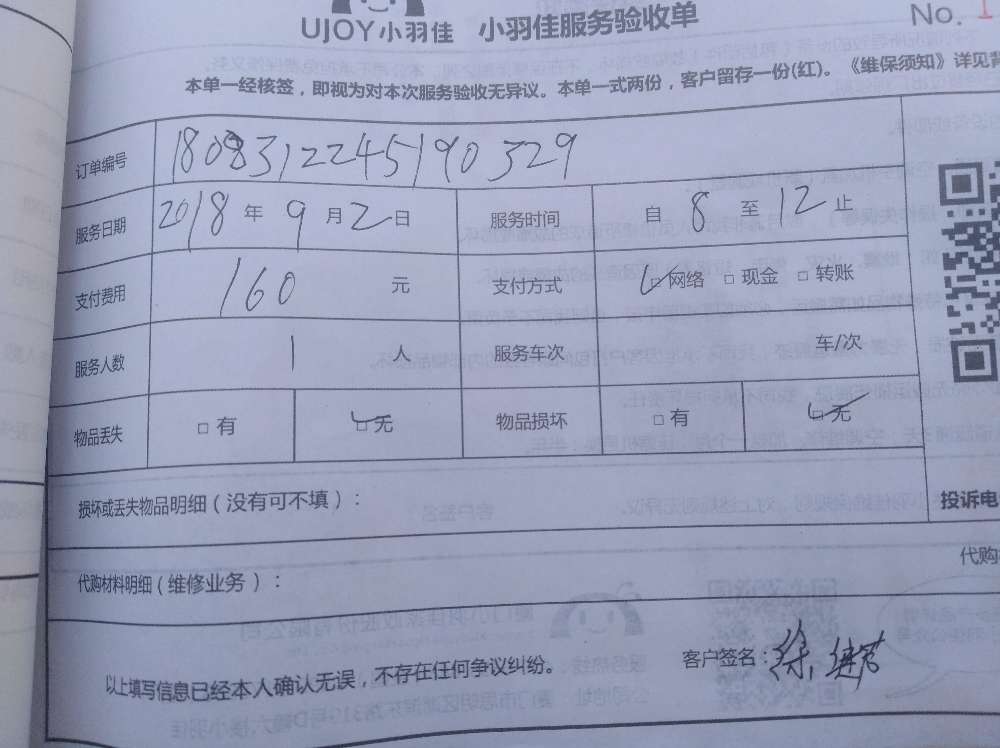 UJOY小羽佳 小羽佳服务验收单
No. 1
本单一经核签，即视为对本次服务验收无异议。本单一式两份，客户留存一份(红)。《维保须知》详见背
订单编号 180831224519 0329
服务日期 2018 年 9 月 2 日 服务时间 自 8 至 12 止
支付费用 160 元 支付方式 □ 网络 □ 现金 □ 转账
服务人数 1 人 服务车次 车/次
物品丢失 □ 有 □ 无 物品损坏 □ 有 □ 无
损坏或丢失物品明细（没有可不填）：
投诉电
代购材料明细（维修业务）：
代购
以上填写信息已经本人确认无误，不存在任何争议纠纷。
客户签名：徐